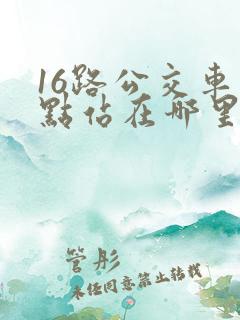 16路公交車
點佔在哪里
管彤
未经同意禁止转载